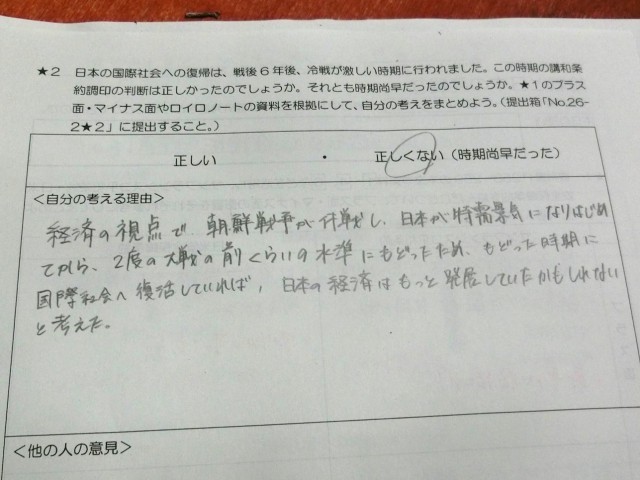 ★2 日本の国際社会への復帰は、戦後6年後、冷戦が激しい時期に行われました。この時期の講和条
約調印の判断は正しかったのでしょうか。それとも時期尚早だったのでしょうか。★1のプラス
面・マイナス面やロイロノートの資料を根拠にして、自分の考えをまとめよう。(提出箱「No.26-
2★2」に提出すること。)
正しい ・ 正しくない(時期尚早だった)
<自分の考える理由>
経済の視点で、朝鮮戦争が休戦し、日本が特需景気になりはじめ
てから、2度の大戦の前くらいの水準にもどったため、もどった時期に
国際社会へ復活していれば、日本の経済はもっと発展していたかもしれない
と考えた。
<他の人の意見>